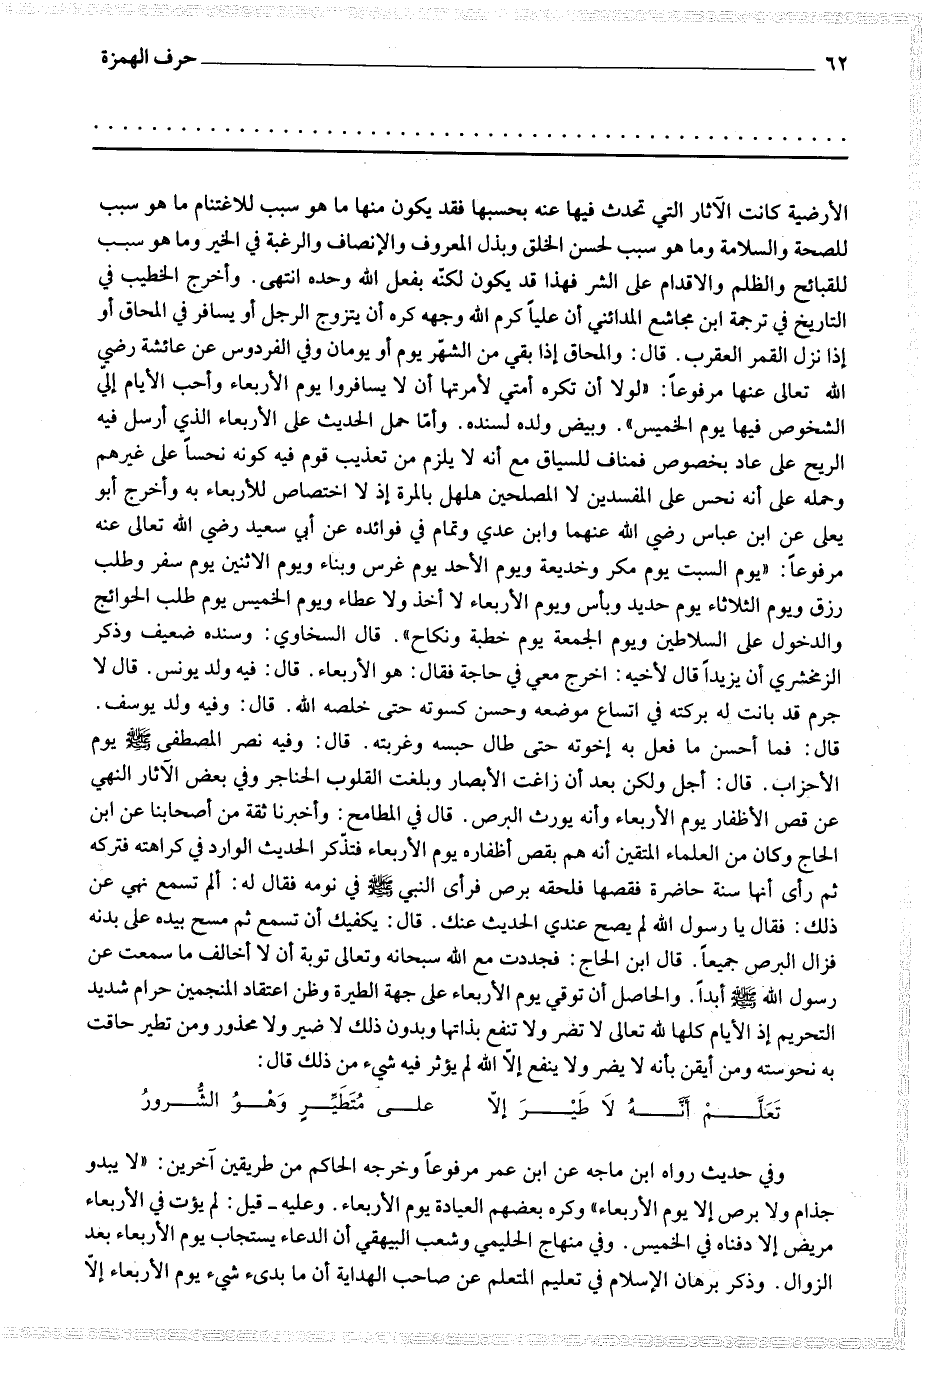 ٦٢ حرف الهمزة
الأرضية كانت الآثار التي تحدث فيها عنه بحسبها فقد يكون منها ما هو سبب للاغتنام ما هو سبب
للصحة والسلامة وما هو سبب لحسن الخلق وبذل المعروف والإنصاف والرغبة في الخير وما هو سبب
للقبائح والظلم والاقدام على الشر فهذا قد يكون لكنّه بفعل الله وحده انتهى. وأخرج الخطيب في
التاريخ في ترجمة ابن مجاشع المدائني أن علياً كرم الله وجهه كره أن يتزوج الرجل أو يسافر في المحاق أو
إذا نزل القمر العقرب. قال: والمحاق إذا بقي من الشهر يوم أو يومان وفي الفردوس عن عائشة رضي
الله تعالى عنها مرفوعاً: «لولا أن تكره أمتي لأمرتها أن لا يسافروا يوم الأربعاء وأحب الأيام إليّ
الشخوص فيها يوم الخميس». وبيض ولده لسنده. وأمّا حمل الحديث على الأربعاء الذي أرسل فيه
الريح على عاد بخصوص فمناف للسياق مع أنه لا يلزم من تعذيب قوم فيه كونه نحساً على غيرهم
وحمله على أنه نحس على المفسدين لا المصلحين هلهل بالمرة إذ لا اختصاص للأربعاء به وأخرج أبو
يعلى عن ابن عباس رضي الله عنهما وابن عدي وتمام في فوائده عن أبي سعيد رضي الله تعالى عنه
مرفوعاً: «يوم السبت يوم مكر وخديعة ويوم الأحد يوم غرس وبناء ويوم الاثنين يوم سفر وطلب
رزق ويوم الثلاثاء يوم حديد وبأس ويوم الأربعاء لا أخذ ولا عطاء ويوم الخميس يوم طلب الحوائج
والدخول على السلاطين ويوم الجمعة يوم خطبة ونكاح». قال السخاوي: وسنده ضعيف وذكر
الزمخشري أن يزيداً قال لأخيه: اخرج معي في حاجة فقال: هو الأربعاء. قال: فيه ولد يونس. قال لا
جرم قد بانت له بركته في اتساع موضعه وحسن كسوته حتى خلصه الله. قال: وفيه ولد يوسف.
قال: فما أحسن ما فعل به إخوته حتى طال حبسه وغربته. قال: وفيه نصر المصطفى ﷺ يوم
الأحزاب. قال: أجل ولكن بعد أن زاغت الأبصار وبلغت القلوب الحناجر وفي بعض الآثار النهي
عن قص الأظفار يوم الأربعاء وأنه يورث البرص. قال في المطامح: وأخبرنا ثقة من أصحابنا عن ابن
الحاج وكان من العلماء المتقين أنه هم بقص أظفاره يوم الأربعاء فتذّكر الحديث الوارد في كراهته فتركه
ثم رأى أنها سنة حاضرة فقصها فلحقه برص فرأى النبي ﷺ في نومه فقال له: ألم تسمع نهي عن
ذلك: فقال يا رسول الله لم يصح عندي الحديث عنك. قال: يكفيك أن تسمع ثم مسح بيده على بدنه
فزال البرص جميعاً. قال ابن الحاج: فجددت مع الله سبحانه وتعالى توبة أن لا أخالف ما سمعت عن
رسول الله ﷺ أبداً. والحاصل أن توقي يوم الأربعاء على جهة الطيرة وظن اعتقاد المنجمين حرام شديد
التحريم إذ الأيام كلها لله تعالى لا تضر ولا تنفع بذاتها وبدون ذلك لا ضير ولا محذور ومن تطير حاقت
به نحوسته ومن أيقن بأنه لا يضر ولا ينفع إلّا الله لم يؤثر فيه شيء من ذلك قال:
تَعَلَّمْ أَنَّهُ لَا طَيْرَ إلّا على مُتَطَيِّرٍ وَهُوَ الشُّرورُ
وفي حديث رواه ابن ماجه عن ابن عمر مرفوعاً وخرجه الحاكم من طريقين آخرين: «لا يبدو
جذام ولا برص إلا يوم الأربعاء» وكره بعضهم العيادة يوم الأربعاء. وعليه ـ قيل: لم يؤت في الأربعاء
مريض إلا دفناه في الخميس. وفي منهاج الحليمي وشعب البيهقي أن الدعاء يستجاب يوم الأربعاء بعد
الزوال. وذكر برهان الإسلام في تعليم المتعلم عن صاحب الهداية أن ما بدىء شيء يوم الأربعاء إلّا